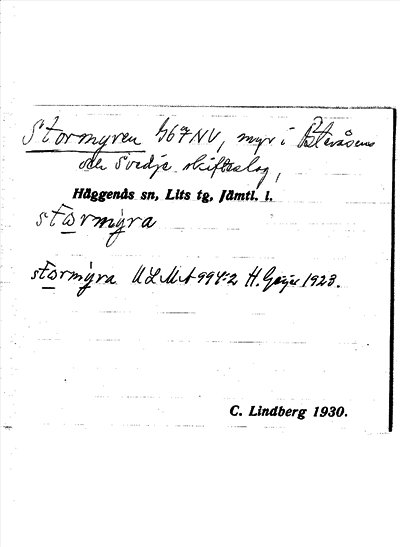 Stormyren 467NV, myr i
och Svedje skifteslag,
Häggenås sn, Lits tg, Jämtl. l.
stormýra
stormýra ULMA 994:2 H. Geijer 1923.
C. Lindberg 1930.